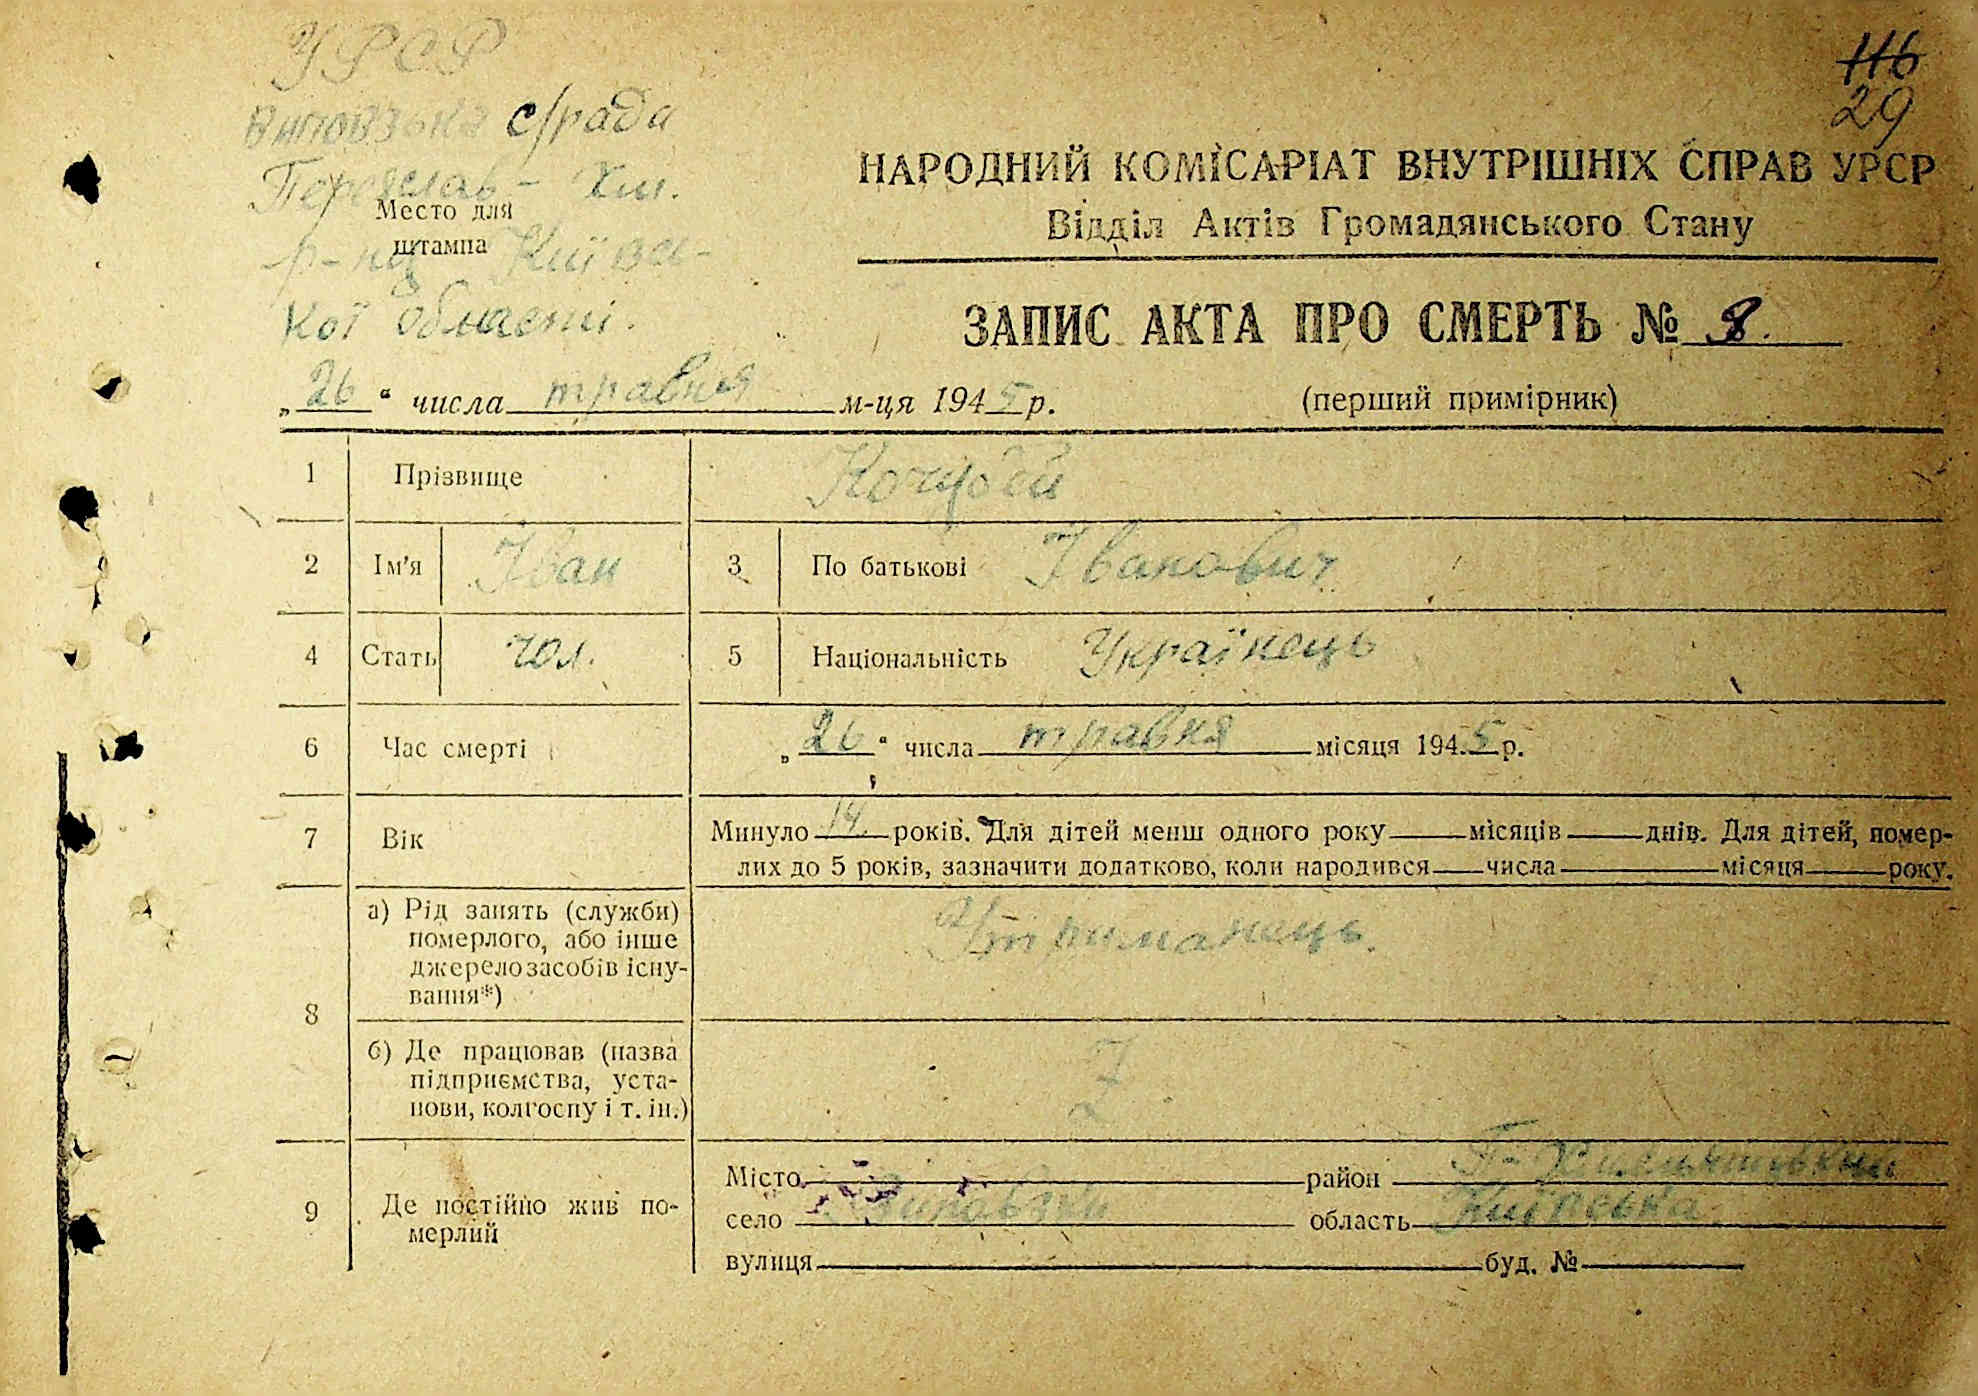 УРСР
116
29
Виповзька с/рада
Переяслав - Хм.
Место для
штампа
р-ну Київсь-
кої області.
НАРОДНИЙ КОМІСАРІАТ ВНУТРІШНІХ СПРАВ УРСР
Відділ Актів Громадянського Стану
ЗАПИС АКТА ПРО СМЕРТЬ № 8.
„ 26 “ числа травня м-ця 1945 р.
(перший примірник)
1 Прізвище Кочубей
2 Ім'я Іван 3 По батькові Іванович
4 Стать чол. 5 Національність Українець
6 Час смерті „ 26 “ числа травня місяця 1945 р.
7 Вік Минуло 14 років. Для дітей менш одного року місяців днів. Для дітей, помер-
лих до 5 років, зазначити додатково, коли народився числа місяця року.
8 а) Рід занять (служби)
померлого, або інше
джерело засобів існу-
вання*)
Утриманець.
б) Де працював (назва
підприємства, уста-
нови, колгоспу і т. ін.)
9 Де постійно жив по-
мерлий
Місто район П-Хмельницький
село Виповзки область Київська.
вулиця буд. №